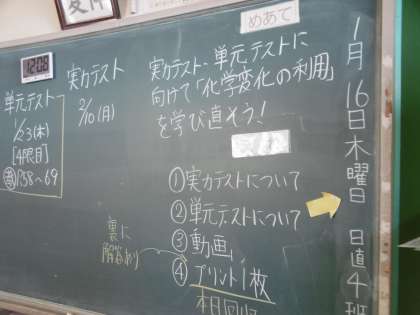 1月16日木曜日 日直4班
めあて
実力テスト・単元テストに
向けて「化学変化の利用」
を学び直そう!
①実力テストについて
②単元テストについて
③動画
④プリント1枚
本日回収
裏に
解答あり
実力テスト
2/10(月)
12:08
単元テスト
1/23(木)
[4限目]
P.58〜69